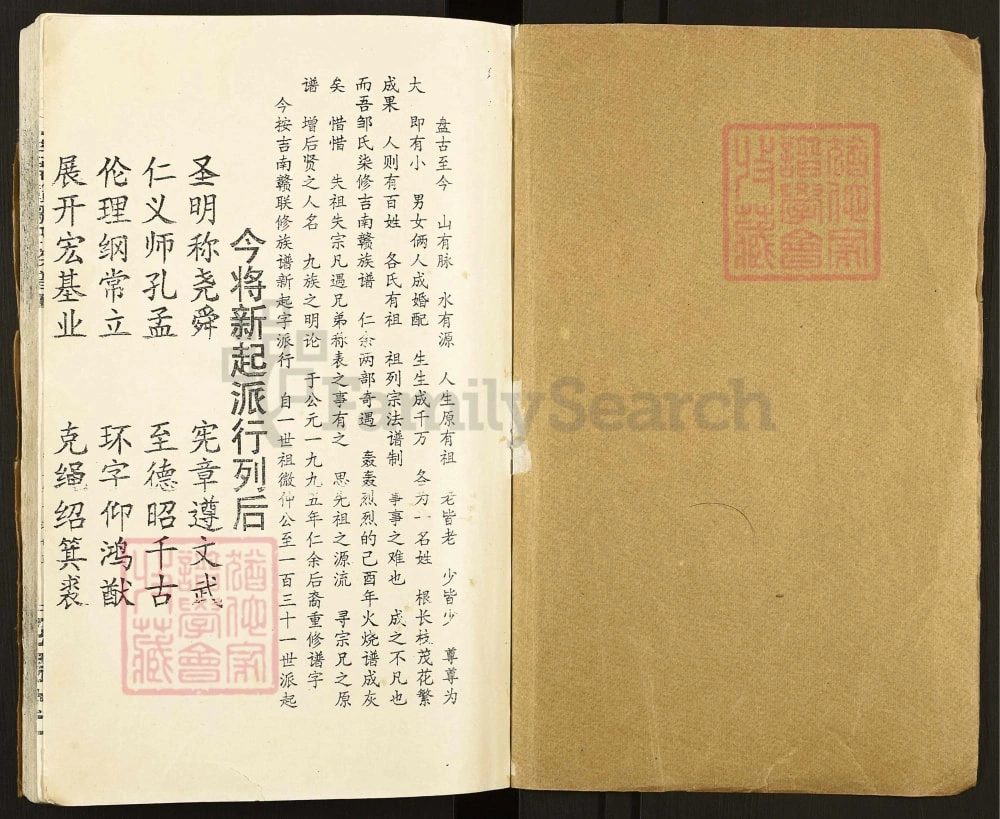 盘古至今 山有脉 水有源 人生原有祖 老皆老 少皆少 尊尊为
大 即有小 男女俩人成婚配 生生成千万 各为一名姓 根长枝茂花繁
成果 人则有百姓 各氏有祖 祖列宗法谱制 事事之难也 成之不凡也
而吾邹氏柒修吉南赣族谱 仁余两部奇遇 轰轰烈烈的己酉年火烧谱成灰
矣 惜惜 失祖失宗凡遇兄弟称表之事有之 思先祖之源流 寻宗兄之原
谱 增后贤之人名 九族之明论 于公元一九九五年仁余后裔重修谱字
今按吉南赣联修族谱新起字派行 自一世祖微仲公至一百三十一世派起
今将新起派行列后
圣明称尧舜 宪章遵文武
仁义师孔孟 至德昭千古
伦理纲常立 环字仰鸿猷
展开宏基业 克绳绍箕裘
猶他家
譜學會
收藏
猶他家
譜學會
收藏
FamilySearch